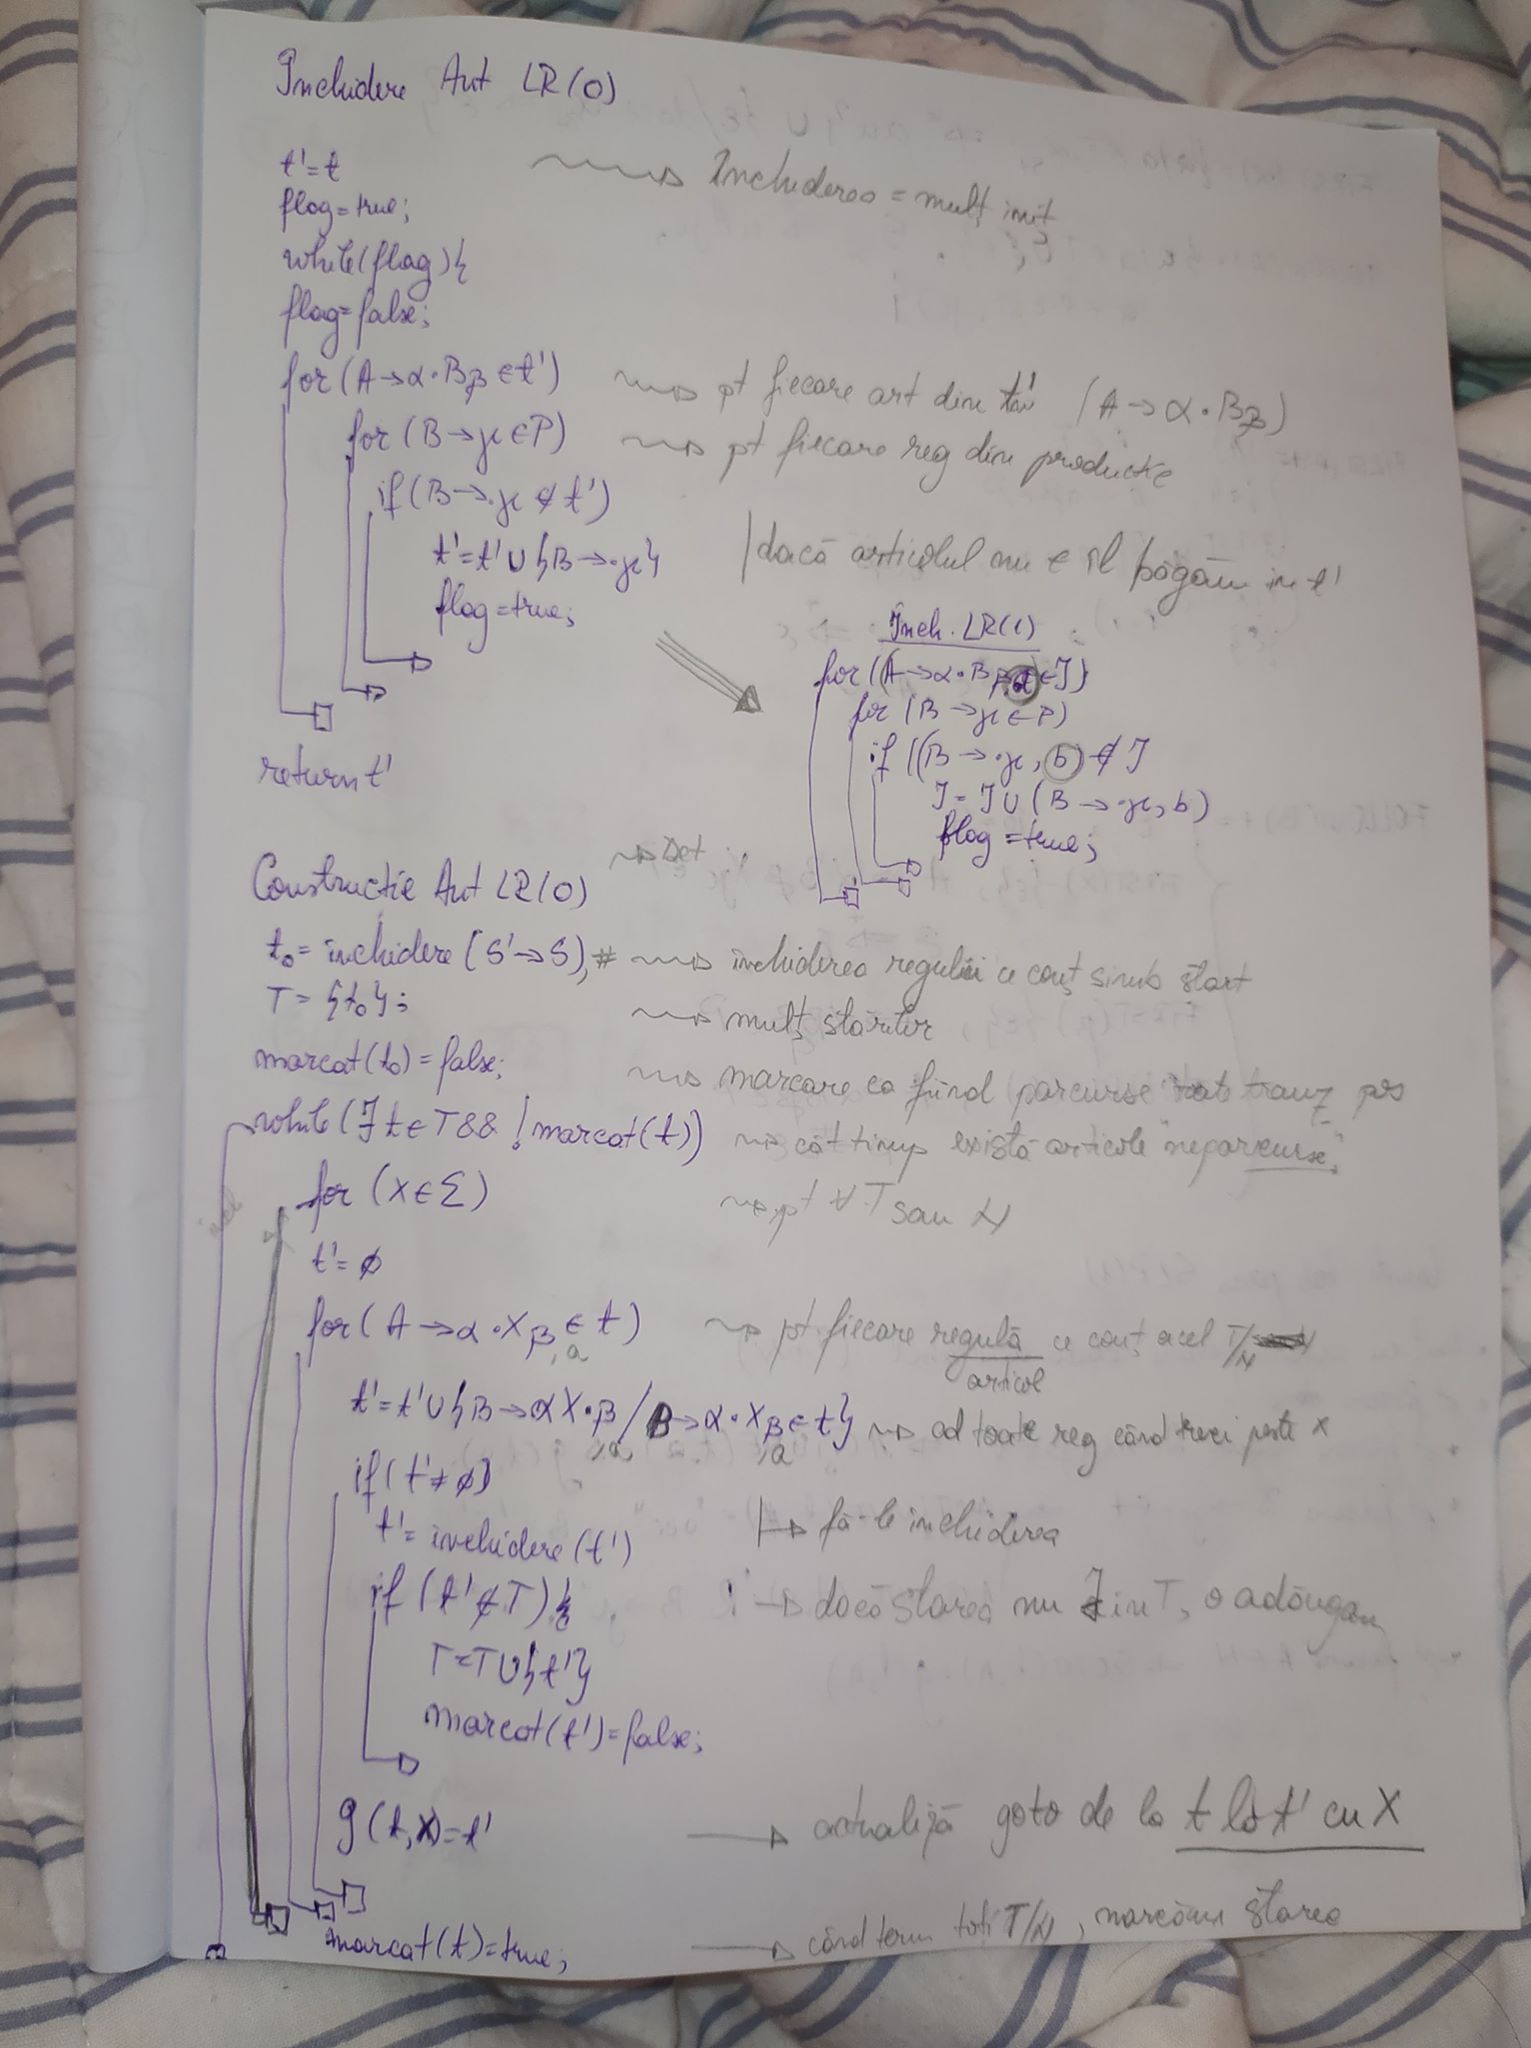 Închidere Aut LR(0)
t'=t ⟶ Închiderea = mulț init
flag=true;
while(flag){
flag=false;
for(A→α·Bβ∈t') ⟶ pt fiecare art din t' (A→α·Bβ)
for(B→γ∈P) ⟶ pt fiecare reg din producție
if(B→·γ∉t')
t'=t'∪{B→·γ} | dacă articolul nu e îl băgăm in t'
flag=true;
return t'
Înch. LR(1)
for((A→α·Bβ,a)∈I)
for(B→γ∈P)
if((B→·γ,b)∉I
I=I∪(B→·γ,b)
flag=true;
Constructie Aut LR(0) ⟶ Det
t₀=închidere(S'→S),# ⟶ închiderea regulii ce conț simb start
T={t₀}; ⟶ mulț stărilor
marcat(t₀)=false; ⟶ marcare ca fiind parcurse toate tranz pos
while(∃t∈T&&!marcat(t)) ⟶ cât timp există articole "neparcurse"
for(X∈Σ) ⟶ pt ∀ T sau N
t'=∅
for(A→α·Xβ,a∈t) ⟶ pt fiecare regulă ce conț acel T/N
articol
t'=t'∪{B→αX·β,a/B→α·Xβ,a∈t} ⟶ ad toate reg când treci peste X
if(t'≠∅)
t'=închidere(t') ⟶ fă-le închiderea
if(t'∉T){ ⟶ dacă starea nu ∃ in T, o adăugăm
T=T∪{t'}
marcat(t')=false;
g(t,X)=t' ⟶ actualiză goto de la t la t' cu X
marcat(t)=true; ⟶ când term toți T/N, marcăm starea